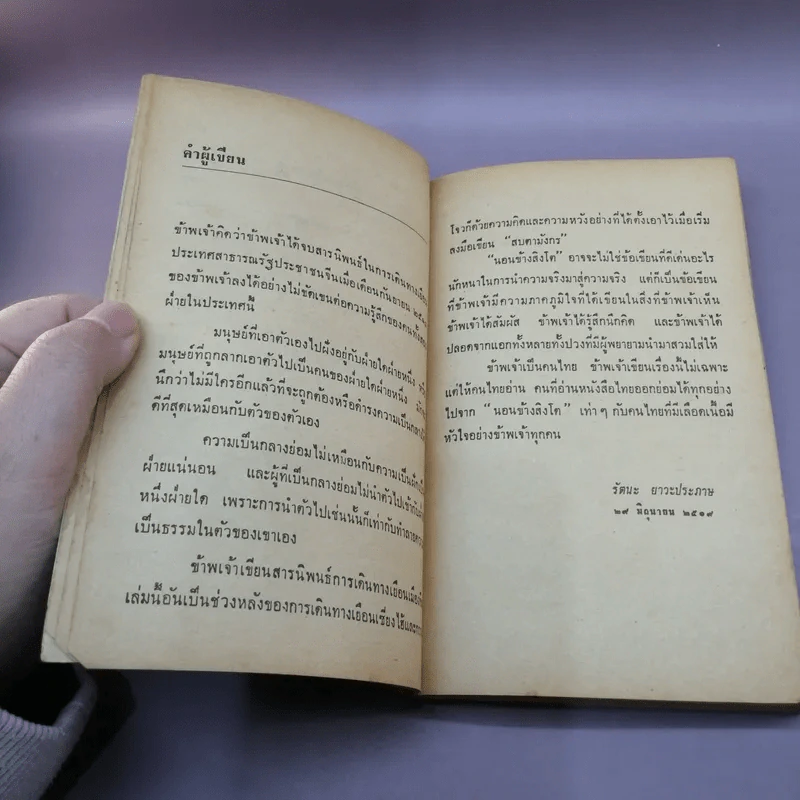 คำผู้เขียน
ข้าพเจ้าคิดว่าข้าพเจ้าได้จบสารนิพนธ์ในการเดินทาง
ประเทศสาธารณรัฐประชาชนจีนเมื่อเดือนกันยายน
ของข้าพเจ้าลงได้อย่างไม่ขัดเขนต่อความรู้สึกของคน
ฝ่ายในประเทศนี้
มนุษย์ที่เอาตัวเองไปฝังอยู่กับฝ่ายใดฝ่ายหนึ่ง
มนุษย์ที่ถูกลากเอาตัวไปเป็นคนของฝ่ายใดฝ่ายหนึ่ง
นึกว่าไม่มีใครอีกแล้วที่จะถูกต้องหรือดำรงความเป็นกลาง
ดีที่สุดเหมือนกับตัวของตัวเอง
ความเป็นกลางย่อมไม่เหมือนกับความเป็น
ฝ่ายแน่นอน และผู้ที่เป็นกลางย่อมไม่นำตัวไปเข้ากับ
หนึ่งฝ่ายใด เพราะการนำตัวไปเช่นนั้นก็เท่ากับทำลาย
เป็นธรรมในตัวของเขาเอง
ข้าพเจ้าเขียนสารนิพนธ์การเดินทางเยือน
เล่มนี้อันเป็นช่วงหลังของการเดินทางเยือนเซี่ยงไฮ้และ
ใจวก็ด้วยความคิดและความหวังอย่างที่ได้ตั้งเอาไว้เมื่อเริ่ม
ลงมือเขียน “สบตามังกร”
“นอนข้างสิงโต” อาจจะไม่ใช่ข้อเขียนที่ดีเด่นอะไร
นักหนาในการนำความจริงมาสู่ความจริง แต่ก็เป็นข้อเขียน
ที่ข้าพเจ้ามีความภาคภูมิใจที่ได้เขียนในสิ่งที่ข้าพเจ้าเห็น
ข้าพเจ้าได้สัมผัส ข้าพเจ้าได้รู้สึกนึกคิด และข้าพเจ้าได้
ปลอดจากแอกทั้งหลายทั้งปวงที่มีผู้พยายามนำมาสวมใส่ให้
ข้าพเจ้าเป็นคนไทย ข้าพเจ้าเขียนเรื่องนี้ไม่เฉพาะ
แต่ให้คนไทยอ่าน คนที่อ่านหนังสือไทยออกย่อมได้ทุกอย่าง
ไปจาก “นอนข้างสิงโต” เท่าๆ กับคนไทยที่มีเลือดเนื้อมี
หัวใจอย่างข้าพเจ้าทุกคน
รัตนะ ยาวะประภาษ
๒๙ มิถุนายน ๒๕๑๙